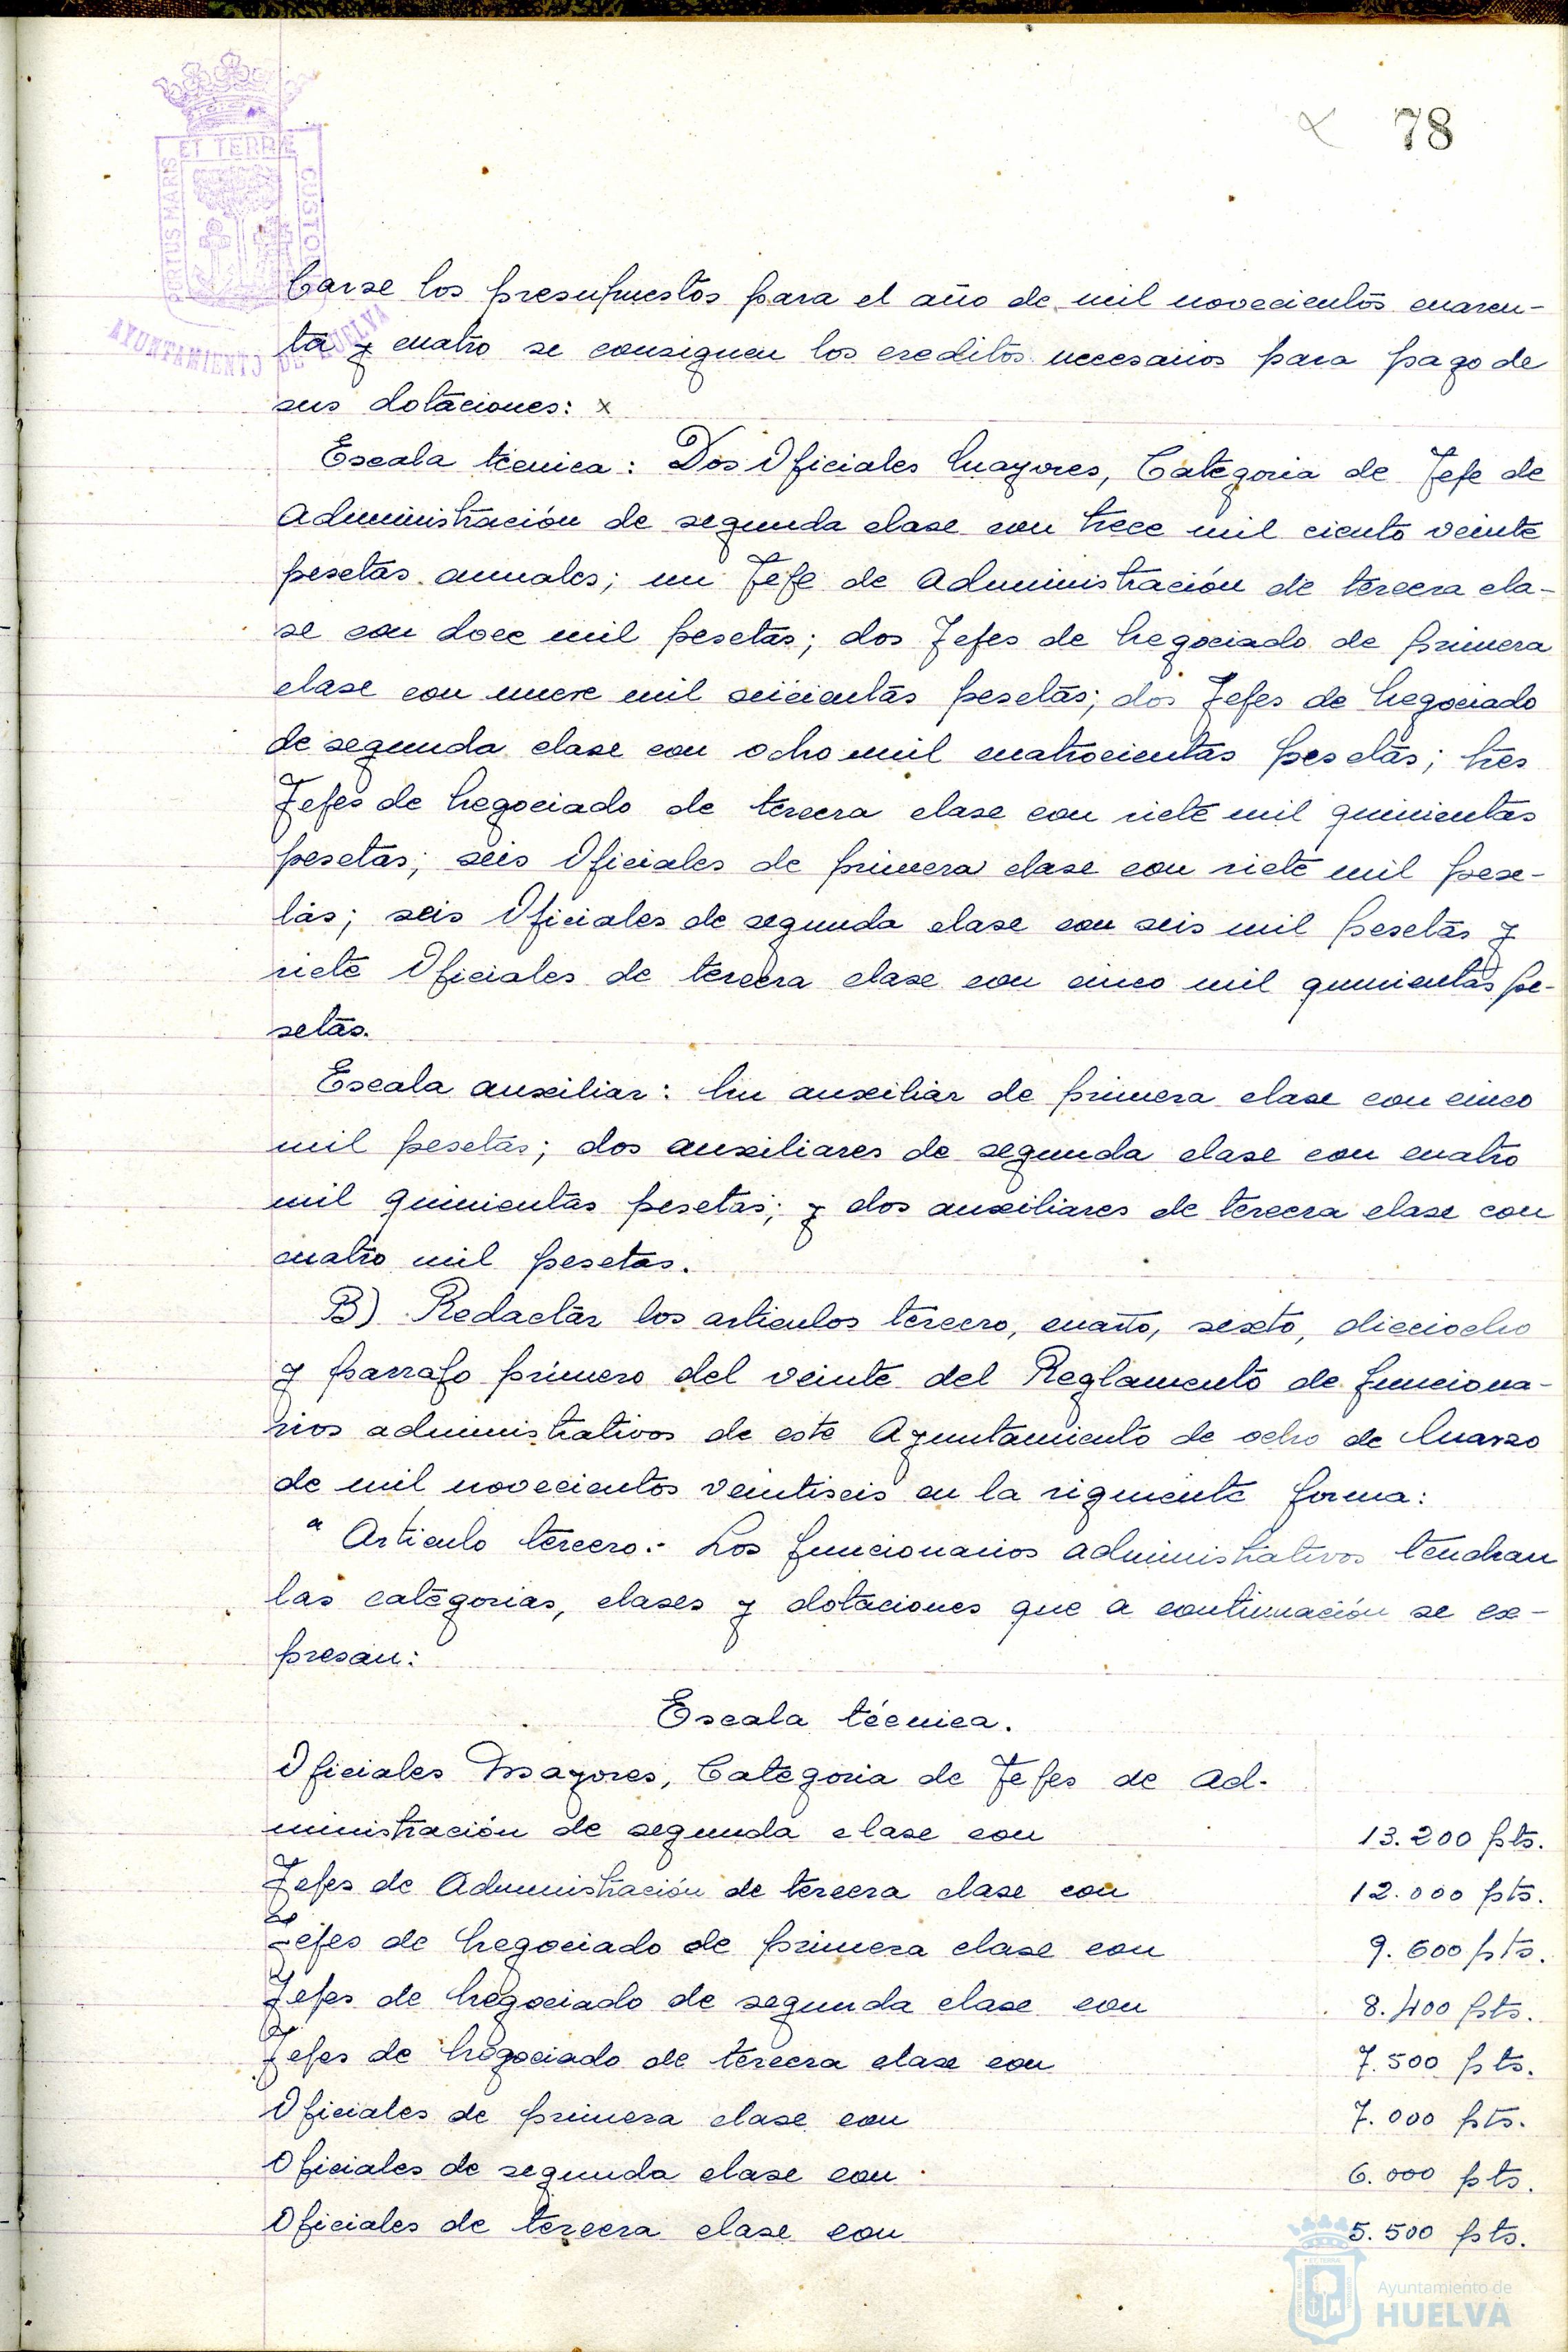 78
PORTUS MARIS ET TERRÆ CUSTO
AYUNTAMIENTO DE HUELVA
carse los presupuestos para el año de mil novecientos cuaren-
ta y cuatro se consignen los creditos necesarios para pago de
sus dotaciones: x
Escala técnica: Dos Oficiales Mayores, Categoria de Jefe de
Administración de segunda clase con trece mil ciento veinte
pesetas anuales; un Jefe de Administración de tercera cla-
se con doce mil pesetas; dos Jefes de Negociado de primera
clase con nueve mil seicientas pesetas; dos Jefes de Negociado
de segunda clase con ocho mil cuatrocientas pesetas; tres
Jefes de Negociado de tercera clase con siete mil quinientas
pesetas; seis Oficiales de primera clase con siete mil pese-
tas; seis Oficiales de segunda clase con seis mil pesetas y
siete Oficiales de tercera clase con cinco mil quinientas pe-
setas.
Escala auxiliar: Un auxiliar de primera clase con cinco
mil pesetas; dos auxiliares de segunda clase con cuatro
mil quinientas pesetas; y dos auxiliares de tercera clase con
cuatro mil pesetas.
B) Redactar los articulos tercero, cuarto, sexto, dieciocho
y parrafo primero del veinte del Reglamento de funciona-
rios administrativos de este Ayuntamiento de ocho de Marzo
de mil novecientos veintiseis en la siguiente forma:
" Articulo tercero.- Los funcionarios administrativos tendran
las categorias, clases y dotaciones que a continuación se ex-
presan:
Escala técnica.
Oficiales Mayores, Categoria de Jefes de Ad-
ministración de segunda clase con 13.200 pts.
Jefes de Administración de tercera clase con 12.000 pts.
Jefes de Negociado de primera clase con 9.600 pts.
Jefes de Negociado de segunda clase con 8.400 pts.
Jefes de Negociado de tercera clase con 7.500 pts.
Oficiales de primera clase con 7.000 pts.
Oficiales de segunda clase con 6.000 pts.
Oficiales de tercera clase con 5.500 pts.
Ayuntamiento de
HUELVA